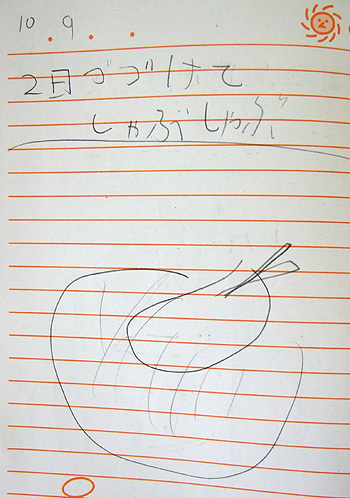 10 . 9 . .
2日づづけて
しゃぶしゃぶ